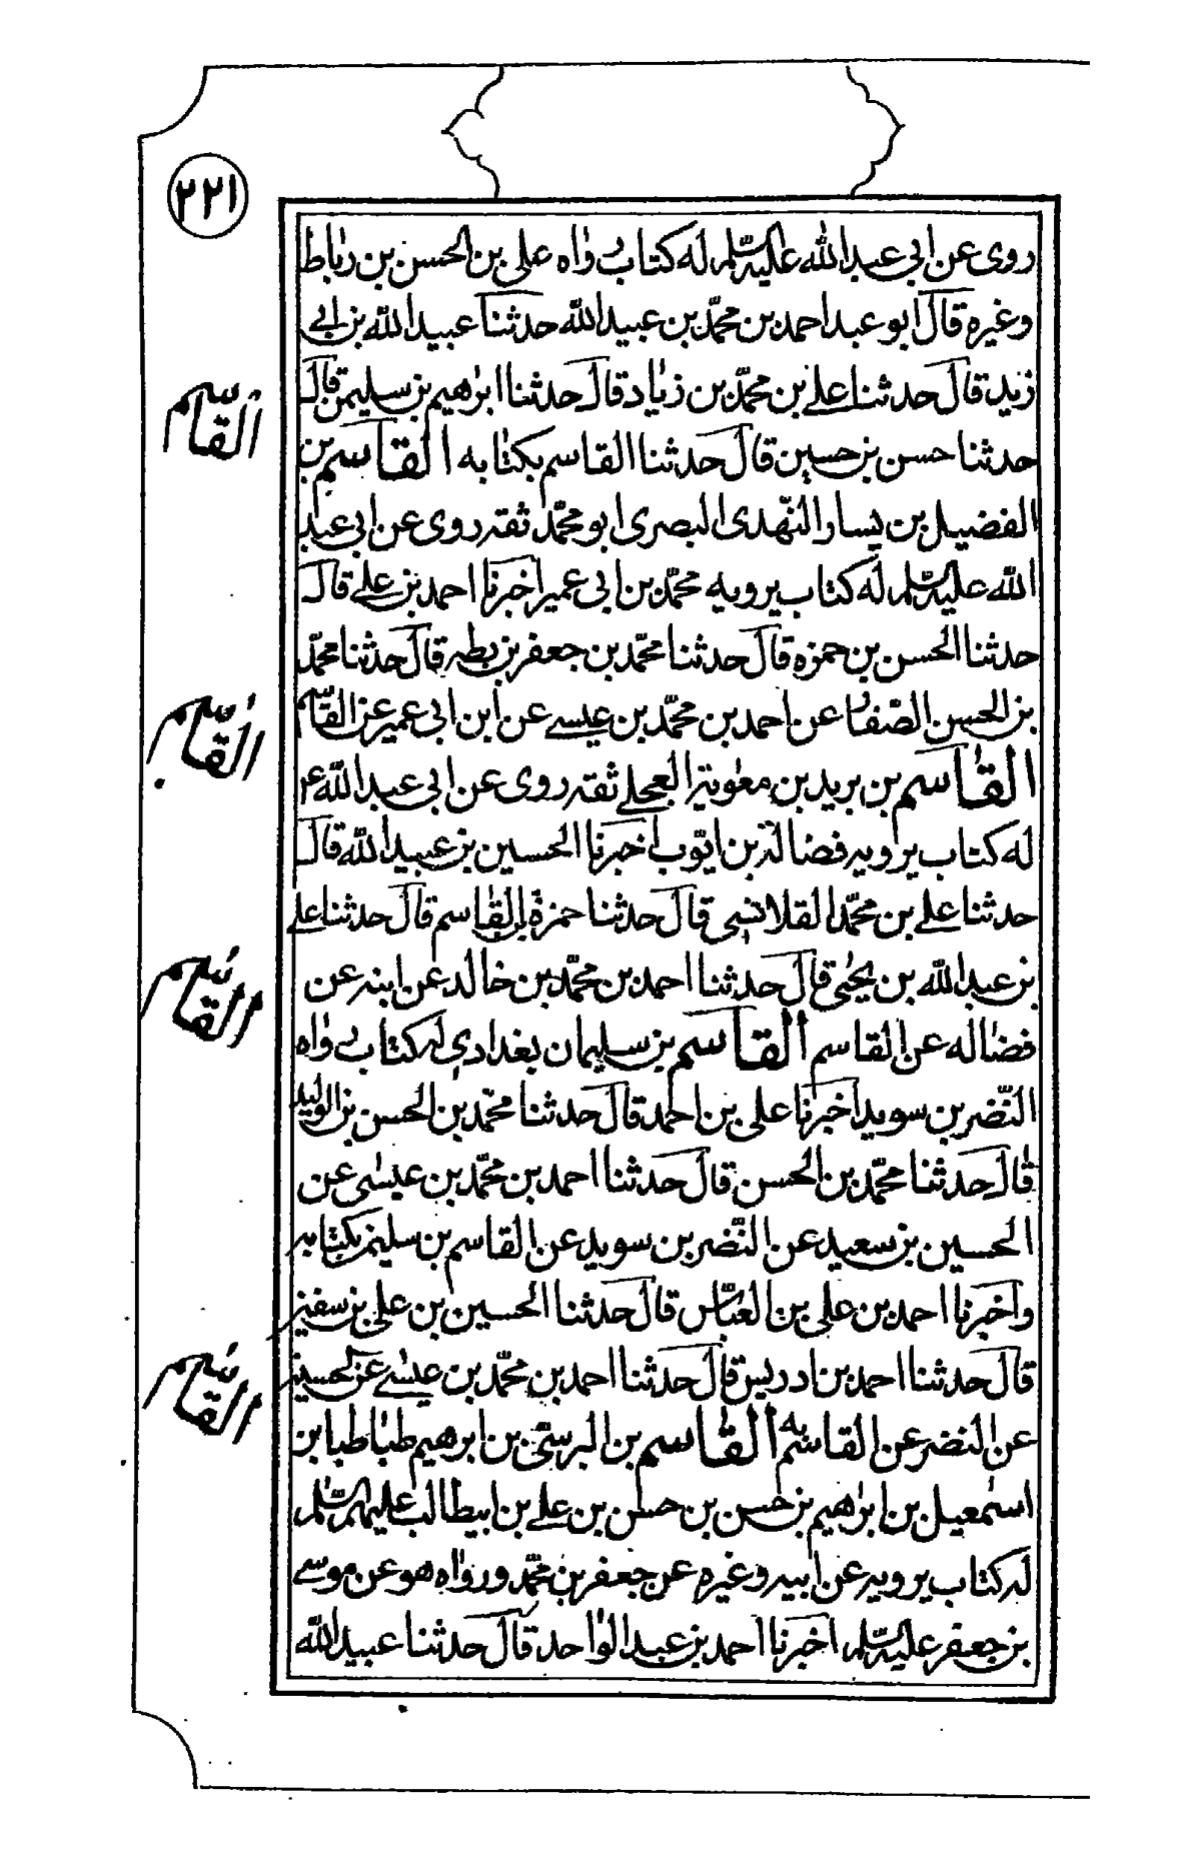 ٢٢١
روى عن ابى عبد الله عليه السّلم له كتاب رواه على بن الحسن بن رباط
وغيره قال ابو عبد احمد بن محمّد بن عبيد الله حدثنا عبيد الله بن ابي
زيد قال حدثنا علي بن محمّد بن زياد قال حدثنا ابرهيم بن سليمن قال
القاسم
حدثنا حسن بن حسين قال حدثنا القاسم بكتابه القاسم بن
الفضيل بن يسار النّهدى البصرى ابو محمّد ثقه روى عن ابى عبد
الله عليه السّلم له كتاب يرويه محمّد بن ابى عمير اخبرنا احمد بن علي قال
حدثنا الحسن بن حمزه قال حدثنا محمّد بن جعفر بن بطه قال حدثنا محمّد
بن الحسن الصّفار عن احمد بن محمّد بن عيسى عن ابن ابى عمير عن القاسم
القاسم
القاسم بن بريد بن معوية العجلي ثقه روى عن ابى عبد الله ع
له كتاب يرويه فضالة بن ايّوب اخبرنا الحسين بن عبيد الله قال
حدثنا علي بن محمّد القلانسى قال حدثنا حمزة بن القاسم قال حدثنا علي
بن عبد الله بن يحيى قال حدثنا احمد بن محمّد بن خالد عن ابيه عن
القاسم
فضاله عن القاسم القاسم بن سليمان بغدادي له كتاب رواه
النّضر بن سويد اخبرنا على بن احمد قال حدثنا محمّد بن الحسن بن الوليد
قال حدثنا محمّد بن الحسن قال حدثنا احمد بن محمّد بن عيسى عن
الحسين بن سعيد عن النّضر بن سويد عن القاسم بن سليمن بكتابه
واخبرنا احمد بن على بن العبّاس قال حدثنا الحسين بن على بن سفين
قال حدثنا احمد بن ادريس قال حدثنا احمد بن محمّد بن عيسى عن الحسين
القاسم
عن النضر عن القاسم به القاسم بن البرسّى بن ابرهيم طباطبا بن
اسمعيل بن ابرهيم بن حسن بن حسن بن علي بن ابيطالب عليهم السّلم
له كتاب يرويه عن ابيه وغيره عن جعفر بن محمّد ورواه هو عن موسى
بن جعفر عليه السّلم اخبرنا احمد بن عبد الواحد قال حدثنا عبيد الله